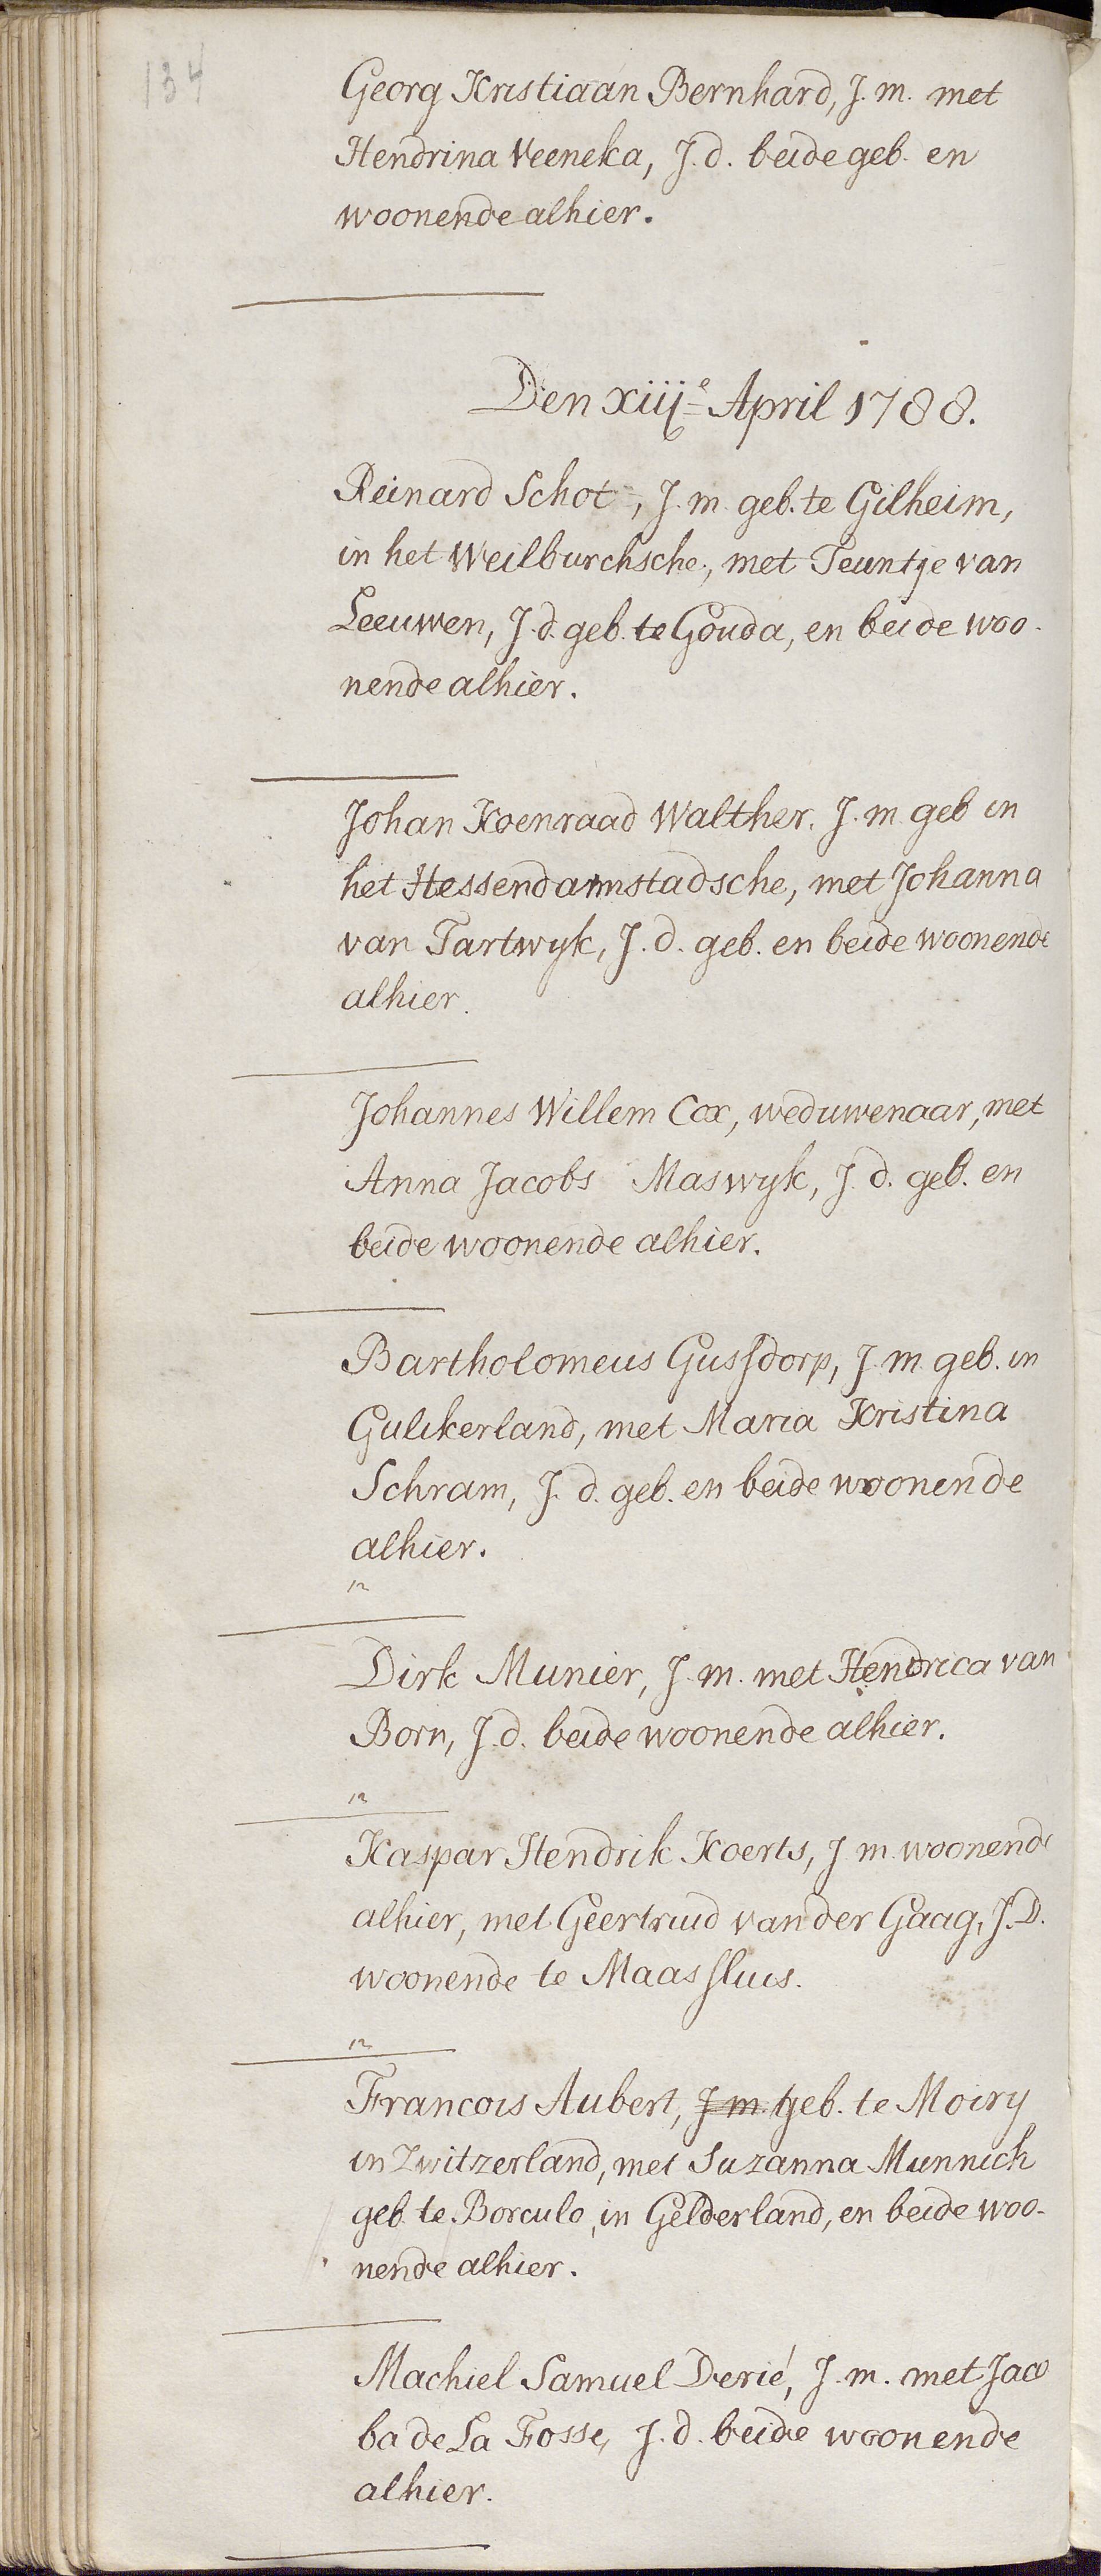 134
Georg Kristiaan Bernhard, J. m. met
Hendrina Veeneka, J. d. beide geb. en
woonende alhier.
Den xiiije April 1788.
Reinard Schot, J. m. geb. te Gilheim,
in het Weilburchsche, met Teuntje van
Leeuwen, J. d. geb. te Gouda, en beide woo-
nende alhier.
Johan Koenraad Walther. J. m. geb in
het Hessendarmstadsche, met Johanna
van Tartwyk, J. d. geb. en beide woonende
alhier.
Johannes Willem Cox, weduwenaar, met
Anna Jacobs Maswyk, J. d. geb. en
beide woonende alhier.
Bartholomeus Gussdorp, J. m. geb. in
Gulikerland, met Maria Kristina
Schram, J. d. geb. en beide woonende
alhier.
Dirk Munier, J. m. met Hendrica van
Born, J. d. beide woonende alhier.
Kaspar Hendrik Koerts, J. m. woonende
alhier, met Geertruid van der Gaag, J. D.
woonende te Maassluis.
Francois Aubert, J m. geb. te Moiry
in Zwitzerland, met Suzanna Munnich
geb te Borculo, in Gelderland, en beide woo-
nende alhier.
Machiel Samuel Derié, J. m. met Jaco
ba de La Fosse, J. d. beide woonende
alhier.